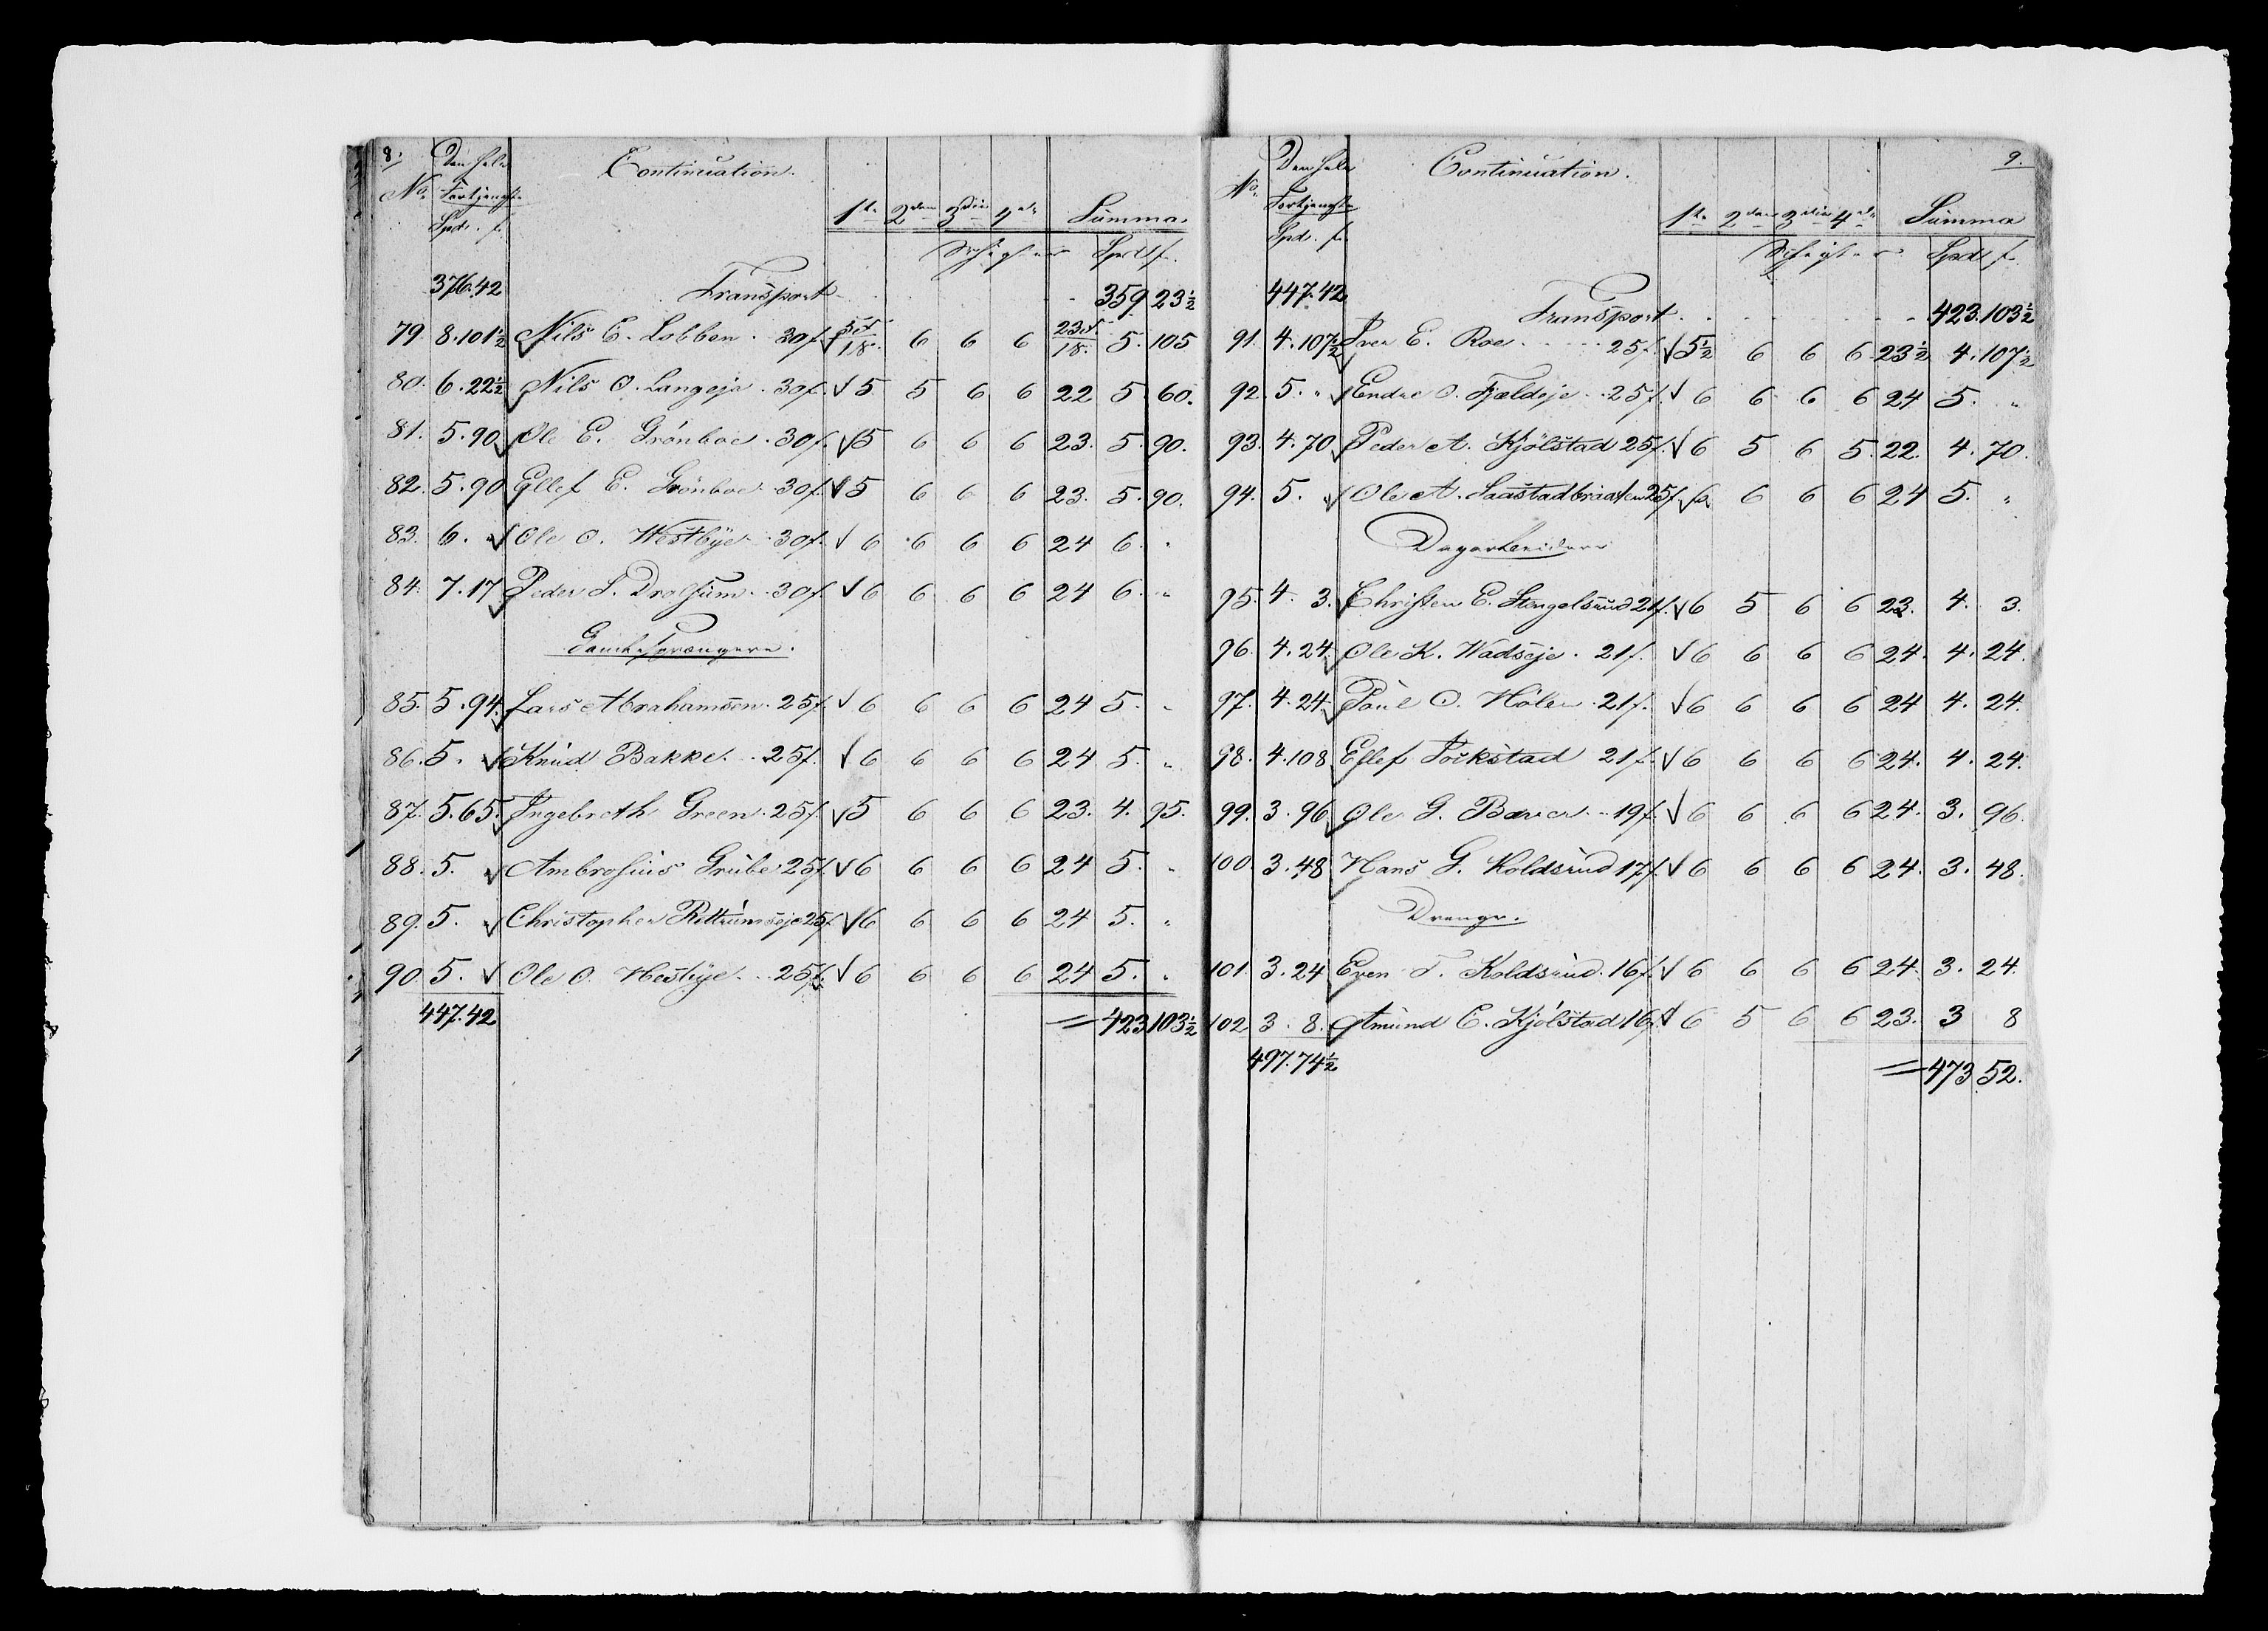 8.
No. Den hele Fortjeneste Spd. f. Continuation. 1te 2den 3die 4de Summa.
Schigter Spd f.
376.42 Transport 359 23½
79. 8.101½ Nils E. Lobben. 30f. √ 6 6 6 5. 105
80. 6.22½ Nils O. Langeje. 30f. √ 5 5 6 6 22 5 60.
81. 5.90 Ole E. Grönboe. 30f. √ 5 6 6 6 23. 5. 90.
82. 5.90 Ellef E. Grönboe. 30f. √ 5 6 6 6 23. 5. 90.
83. 6. " √ Ole O. Westbye. 30f. √ 6 6 6 6 24 6. "
84. 7.17 Peder S. Drolsum. 30f. √ 6 6 6 6 24 6. "
85. 5.94. Lars Abrahamsen. 25f. √ 6 6 6 6 24 5. "
86. 5. " √ Knud Bakke. 25f. √ 6 6 6 6 24 5. "
87. 5.65. Ingebreth Green. 25f. √ 5 6 6 6 23. 4. 95.
88. 5. " √ Ambrosius Grube 25f. √ 6 6 6 6 24 5. "
89. 5. √ Christopher Rettumseje 25f. √ 6 6 6 6 24 5. "
90 5. √ Ole O. Hestbye. 25f. √ 6 6 6 6 24 5. "
447.42 = 423 103½
9.
No. Den hele Fortjeneste Spd. f. Continuation. 1te 2den 3die 4de Summa
Schigter Spd f.
447.42 Transport 423. 103½
91. 4.107½ Iver E. Roe. 25f. √ 5½ 6 6 6 23½ 4. 107½
92. 5. " √ Endre O. Fjeldeje. 25f. √ 6 6 6 6 24 5. "
93. 4.70 Peder A. Kjölstad 25f. √ 6 5 6 5. 22. 4. 70.
94. 5. " √ Ole A. Saastadbraaten 25f. √ 6 6 6 6 24 5. "
Dagarbeidere
95. 4. 3. Christen E. Stengelsrud 21f. √ 6 5 6 6 23. 4. 3.
96. 4.24. Ole K. Wadseje. 21f. √ 6 6 6 6 24. 4. 24.
97. 4.24. Poul O. Holen. 21f. √ 6 6 6 6 24 4. 24.
98. 4.108 Ellef Sockstad 21f. √ 6 6 6 6 24. 4. 24.
99. 3.96 Ole G. Barer. 19f. √ 6 6 6 6 24. 3. 96.
100. 3.48 Hans G. Koldsrud 17f. √ 6 6 6 6 24. 3. 48.
Drenge.
101. 3.24 Even T. Koldsrud. 16f. √ 6 6 6 6 24. 3. 24.
102 3. 8. Amund E. Kjölstad 16f. √ 6 5 6 6 23. 3 8
497.74½ = 473 52.